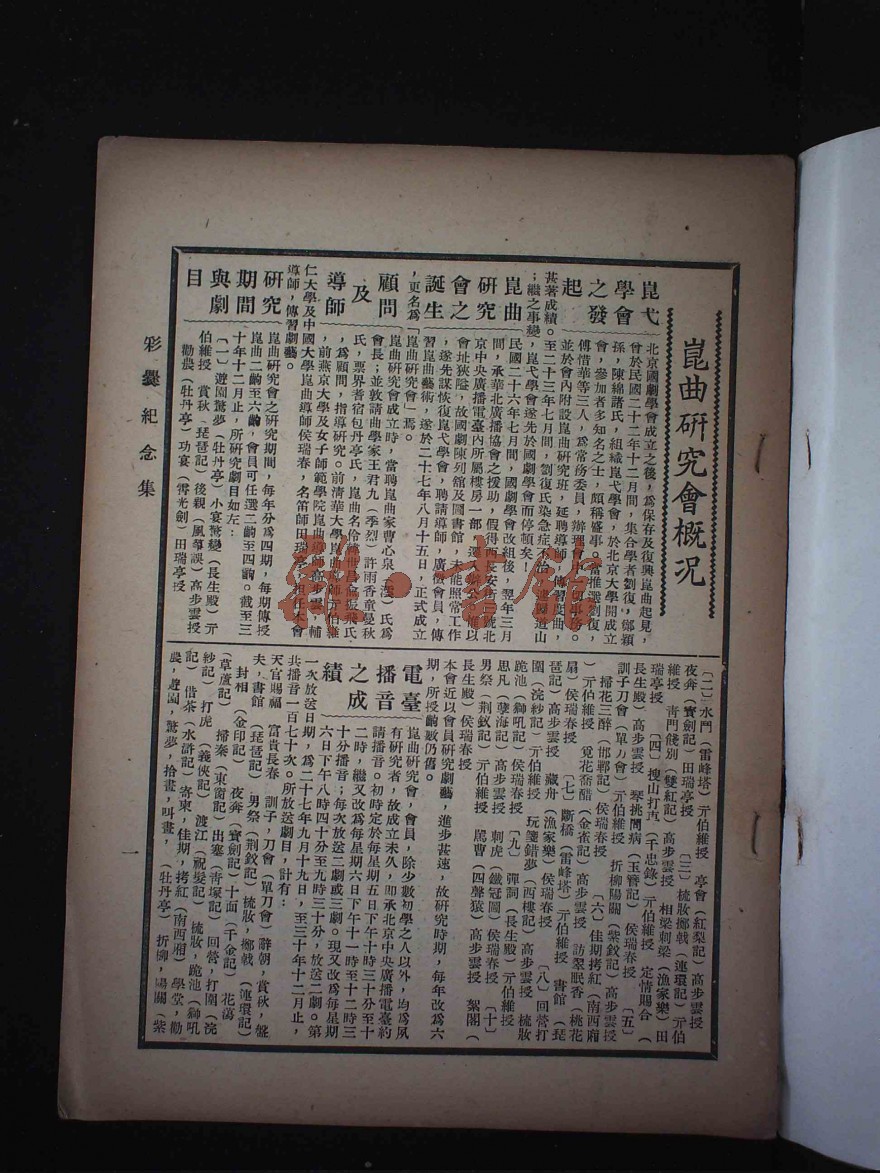 崑曲研究會概況
崑弋學會之發起
北京國劇學會成立之後，爲保存及復興崑曲起見，
會於民國二十二年十二月間，集合學者劉復，鄭穎
孫，陳綿諸氏，組織崑弋學會，於北京大學開成立
會，參加者多知名之士，頗稱盛事。當推選劉復，
傅惜華等三人，爲常務委員，辦理會中一切事務。
並於會內附設崑曲研究班，延聘導師，傳習崑曲，
甚著成績。至二十三年七月間，劉復氏染急症不治，遽歸道山
；繼之事變，崑弋學會遂先於國劇學會而停頓矣！
崑曲研究會之誕生
民國二十六年七月間，國劇學會改組後，翌年三月
間，承華北廣播協會之援助，假得西長安街三號北
京中央廣播電臺內所屬樓房一部，遷入辦公。惟以
會址狹隘，故國劇陳列舘及圖書舘，未能照常工作
，遂先謀恢復崑弋學會，聘請導師，廣徵會員，傳
習崑曲藝術，遂於二十七年八月十五日，正式成立
，更名爲「崑曲研究會」焉。
顧問及導師
崑曲研究會成立時，當聘崑曲家曹心泉（澐）氏爲
會長；並敦請曲學家王君九（季烈）許雨香童曼秋
氏，票界耆宿包丹亭氏，崑曲名伶韓世昌俞振飛氏
，爲顧問，指導研究。前清華大學崑曲導師亓伯維
，前燕京大學及女子師範學院崑曲導師高步雲，輔
仁大學及中國大學崑曲導師侯瑞春，名笛師田瑞亭，担任本會
導師，傳習劇藝。
研究期間與劇目
崑曲研究會之研究期間，每年分爲四期，每期傳授
崑曲二齣至六齣，會員可任選二齣至四齣。截至三
十年十二月止，所研究劇目如左：
〔一〕遊園驚夢（牡丹亭）小宴驚變（長生殿）亓
伯維授　賞秋（琵琶記）後親（風箏誤）高步雲授
勸農（牡丹亭）功宴（霄光劍）田瑞亭授
〔二〕水鬥（雷峰塔）亓伯維授　亭會（紅梨記）高步雲授
夜奔（寶劍記）田瑞亭授　〔三〕梳妝擲戟（連環記）亓伯
維授　靑門餞別（雙紅記）高步雲授　相梁刺梁（漁家樂）田
瑞亭授　〔四〕搜山打車（千忠錄）亓伯維授　定情賜合（
長生殿）高步雲授　琴挑問病（玉簪記）侯瑞春授　〔五〕
訓子刀會（單刀會）亓伯維授　折柳陽關（紫釵記）高步雲授
掃花三醉（邯鄲記）侯瑞春授　〔六〕佳期拷紅（南西廂
）亓伯維授　覓花喬醋（金雀記）高步雲授　訪翠眠香（桃花
扇）侯瑞春授　〔七〕斷橋（雷峰塔）亓伯維授　書館（琵
琶記）高步雲授　藏舟（漁家樂）侯瑞春授　〔八〕回營打
圍（浣紗記）亓伯維授　玩箋錯夢（西樓記）高步雲授　梳妝
跪池（獅吼記）侯瑞春授　〔九〕彈詞（長生殿）亓伯維授
思凡（孽海記）高步雲授　刺虎（鐵冠圖）侯瑞春授　〔十〕
男祭（荆釵記）亓伯維授　罵曹（四聲猿）高步雲授　絮閣（
長生殿）侯瑞春授
本會近以會員研究劇藝，進步甚速，故研究時期，每年改爲六
期，所授齣數仍舊。
電臺播音之成績
崑曲研究會，會員，除少數初學之人以外，均爲夙
有研究者，故成立未久，即承北京中央廣播電臺約
請播音。初時定於每星期五日下午十時三十分至十
二時，繼又改爲每星期六日下午十一時至十二時三
十分播音；每次放送二劇或三劇。現又改爲每星期
六日下午八時四十分至九時三十分，放送二劇。第
一次放送日期，爲二十七年九月十九日，至三十年十二月止，
共播音一百七十次。所放送劇目，計有：
天官賜福　富貴長春　訓子，刀會（單刀會）辭朝，賞秋，盤
夫，書館（琵琶記）男祭（荆釵記）梳妝，擲戟（連環記）
封相（金印記）夜奔（寶劍記）十面（千金記）花蕩
（草蘆記）掃秦（東窗記）出塞（靑塚記）回營，打圍（浣
紗記）打虎（義俠記）渡江（祝髮記）梳妝，跪池（獅吼
記）借茶（水滸記）寄柬，佳期，拷紅（南西廂）學堂，勸
農，遊園，驚夢，拾畫，叫畫，（牡丹亭）折柳，陽關（紫
彩爨紀念集
一